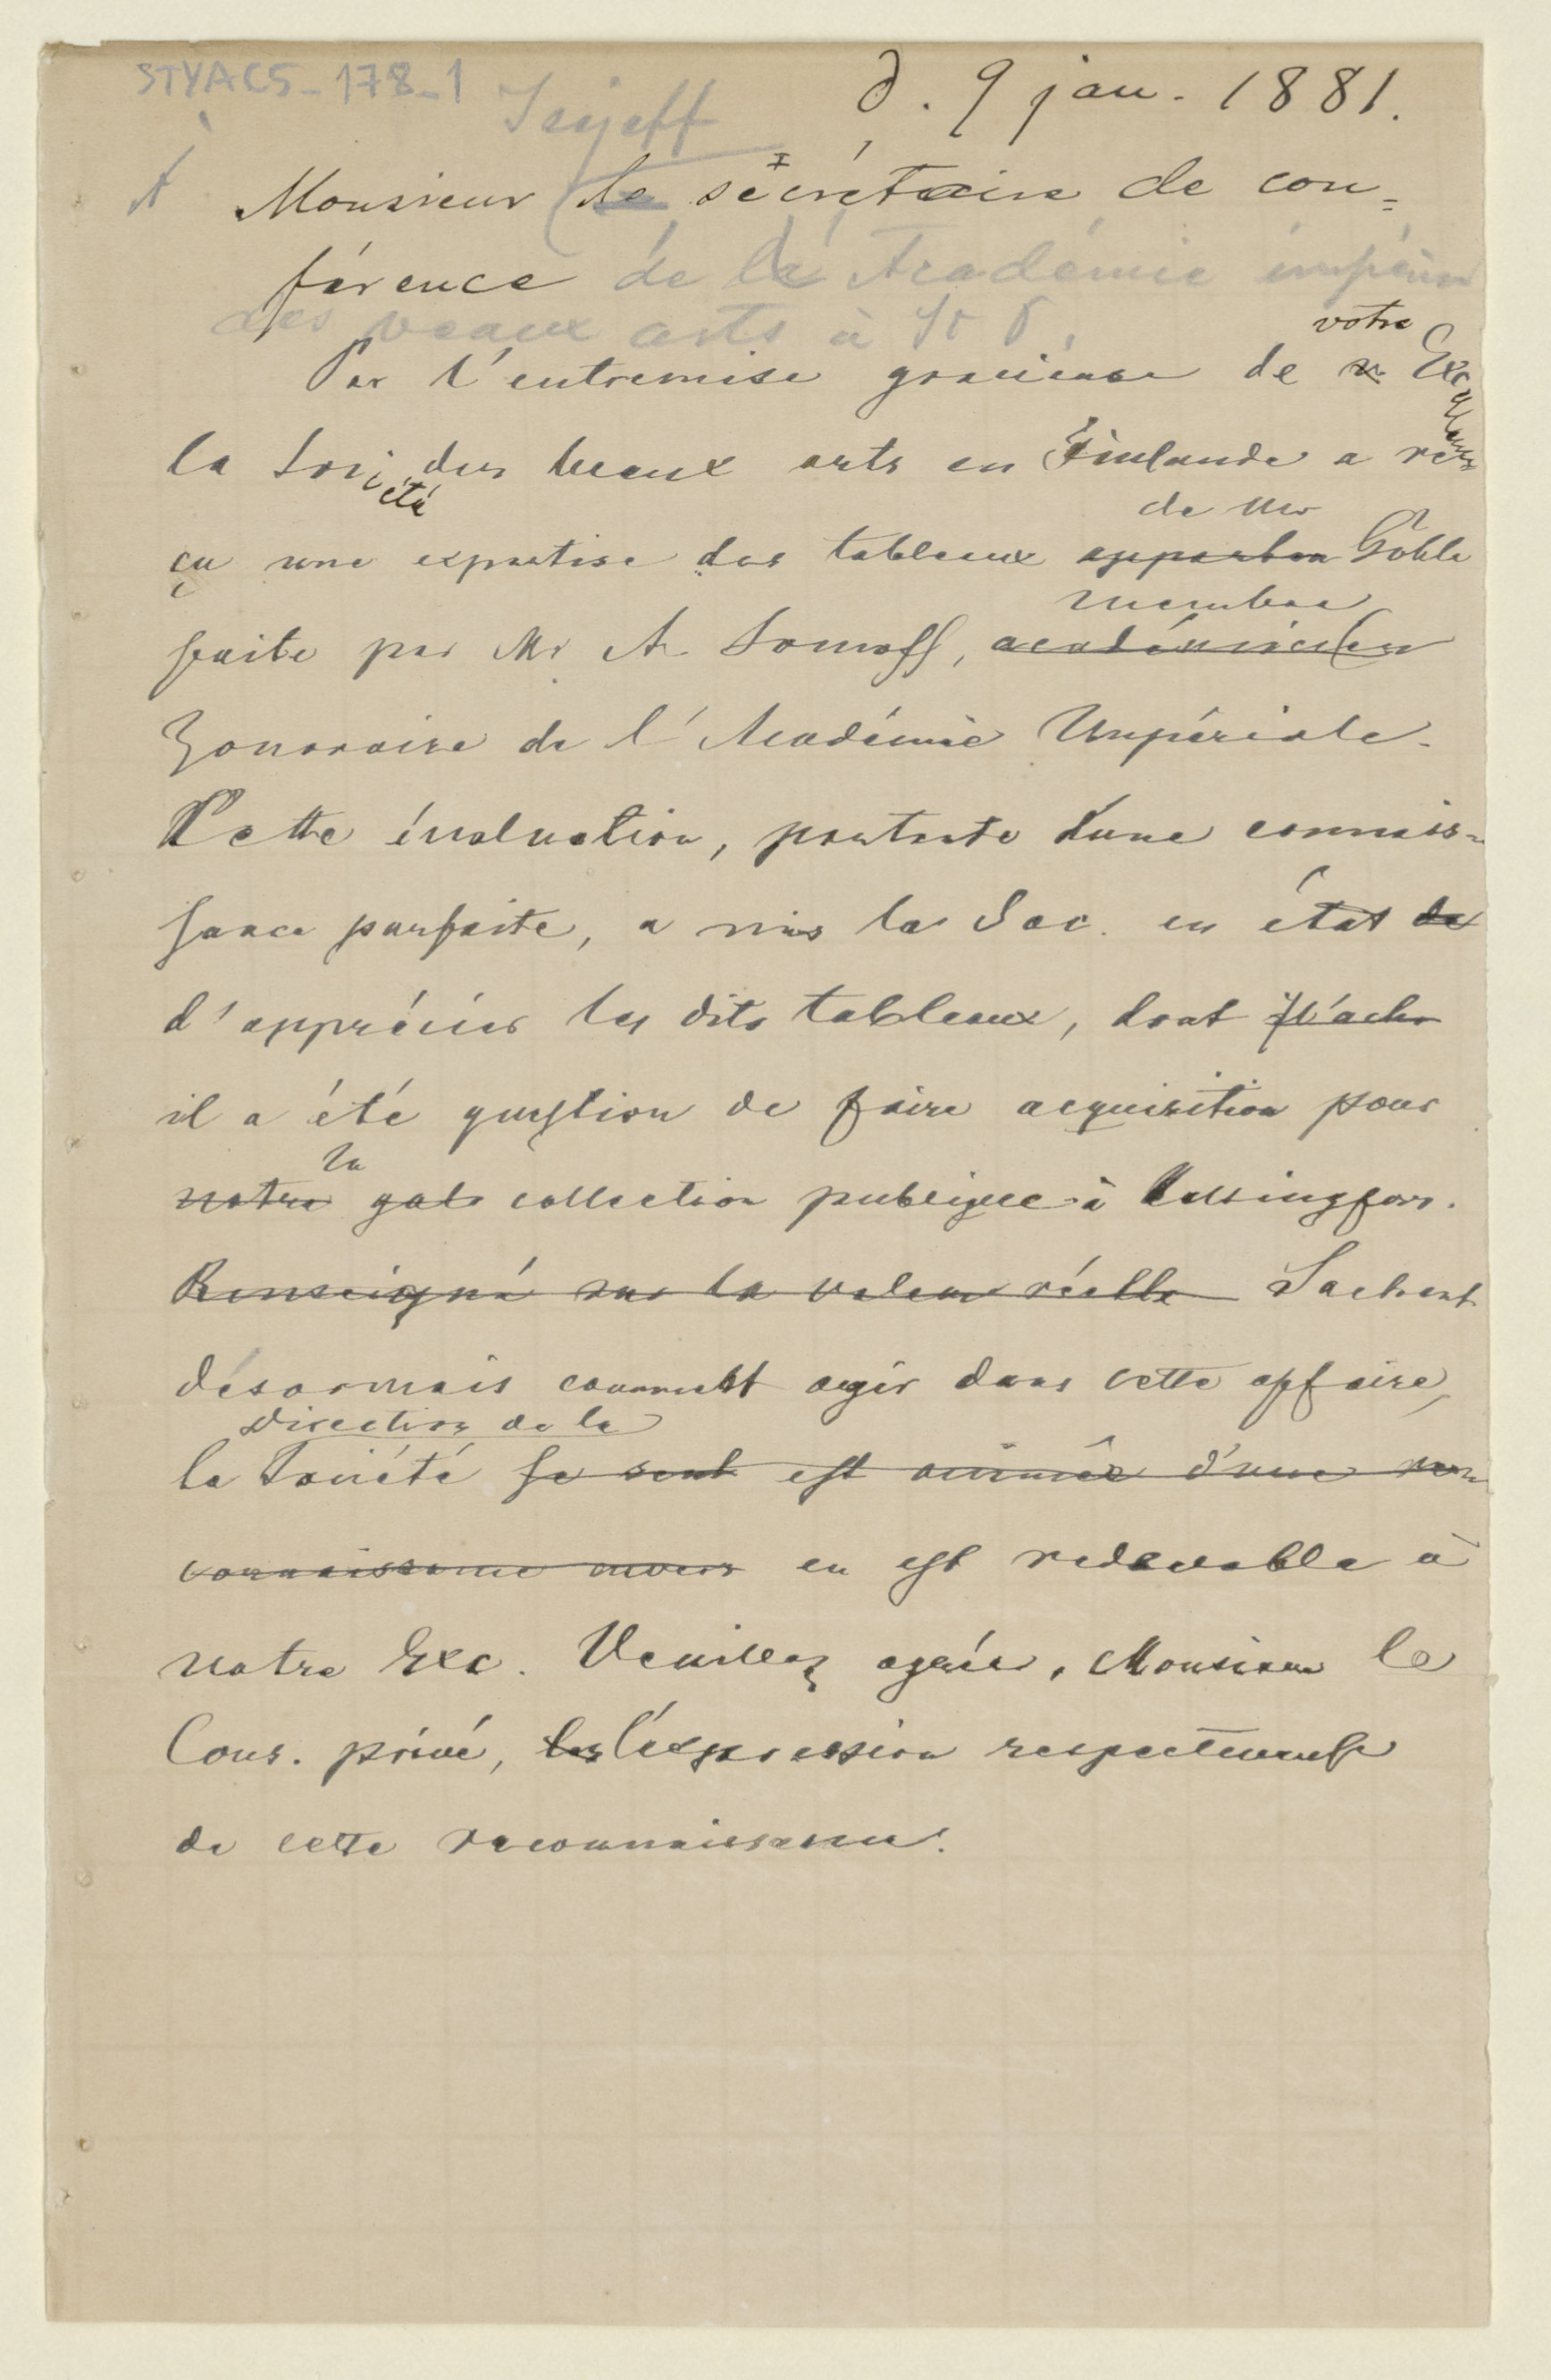 STYAC5_178_1
Isejeff
d. 9 jan. 1881.
A Monsieur le sécrétaire de con=
férence de la Académie impériale
des beaux arts à St P.
votre
Par l'entremise gracieuse de v. Excellence
la Société des beaux arts en Finlande a re
de Mr
çu une expertise des tableaux apparten Göhle
membre
faite par Mr A. Somoff, académicien
honoraire de l'Académie Impériale.
Cette évaluation, portante d'une connais=
sance parfaite, a mis la Soc. en état de
d'apprécier les dits tableaux, dont l'ach
il a été question de faire acquisition pour
la
notre gale collection publique à Helsingfors.
Renseigné sur la valeur réelle Sachant
désormais comment agir dans cette affaire,
Direction de la
la Société se sent est animée d'une re
connaissance envers en est redevable à
votre Exc. Veuillez agréer, Monsieur le
Cons. privé, les l'expression respectueuse
de cette reconnaissance.